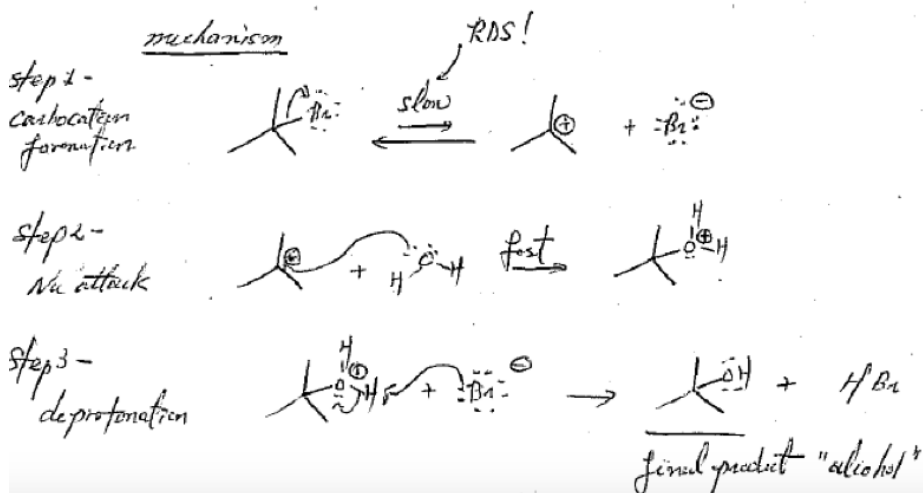 mechanism
RDS!
step 1-
carbocation
formation
Br
slow
⊕
+ :Br: ⊖
step 2-
Nu attack
⊕
+
H O H
fast
H
O ⊕ H
step 3-
deprotonation
H
O ⊕ H
+ :Br: ⊖
OH
+ HBr
final product "alcohol"